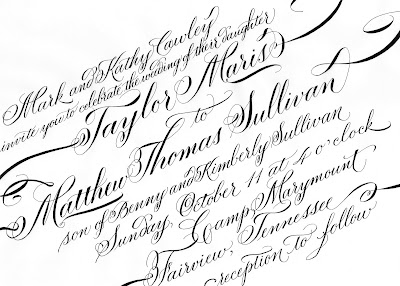 Mark and Kathy Cawley
invite you to celebrate the wedding of their daughter
Taylor Maris
to
Matthew Thomas Sullivan
son of Benny and Kimberly Sullivan
Sunday, October 11 at 4 o'clock
Camp Marymount
Fairview, Tennessee
reception to follow